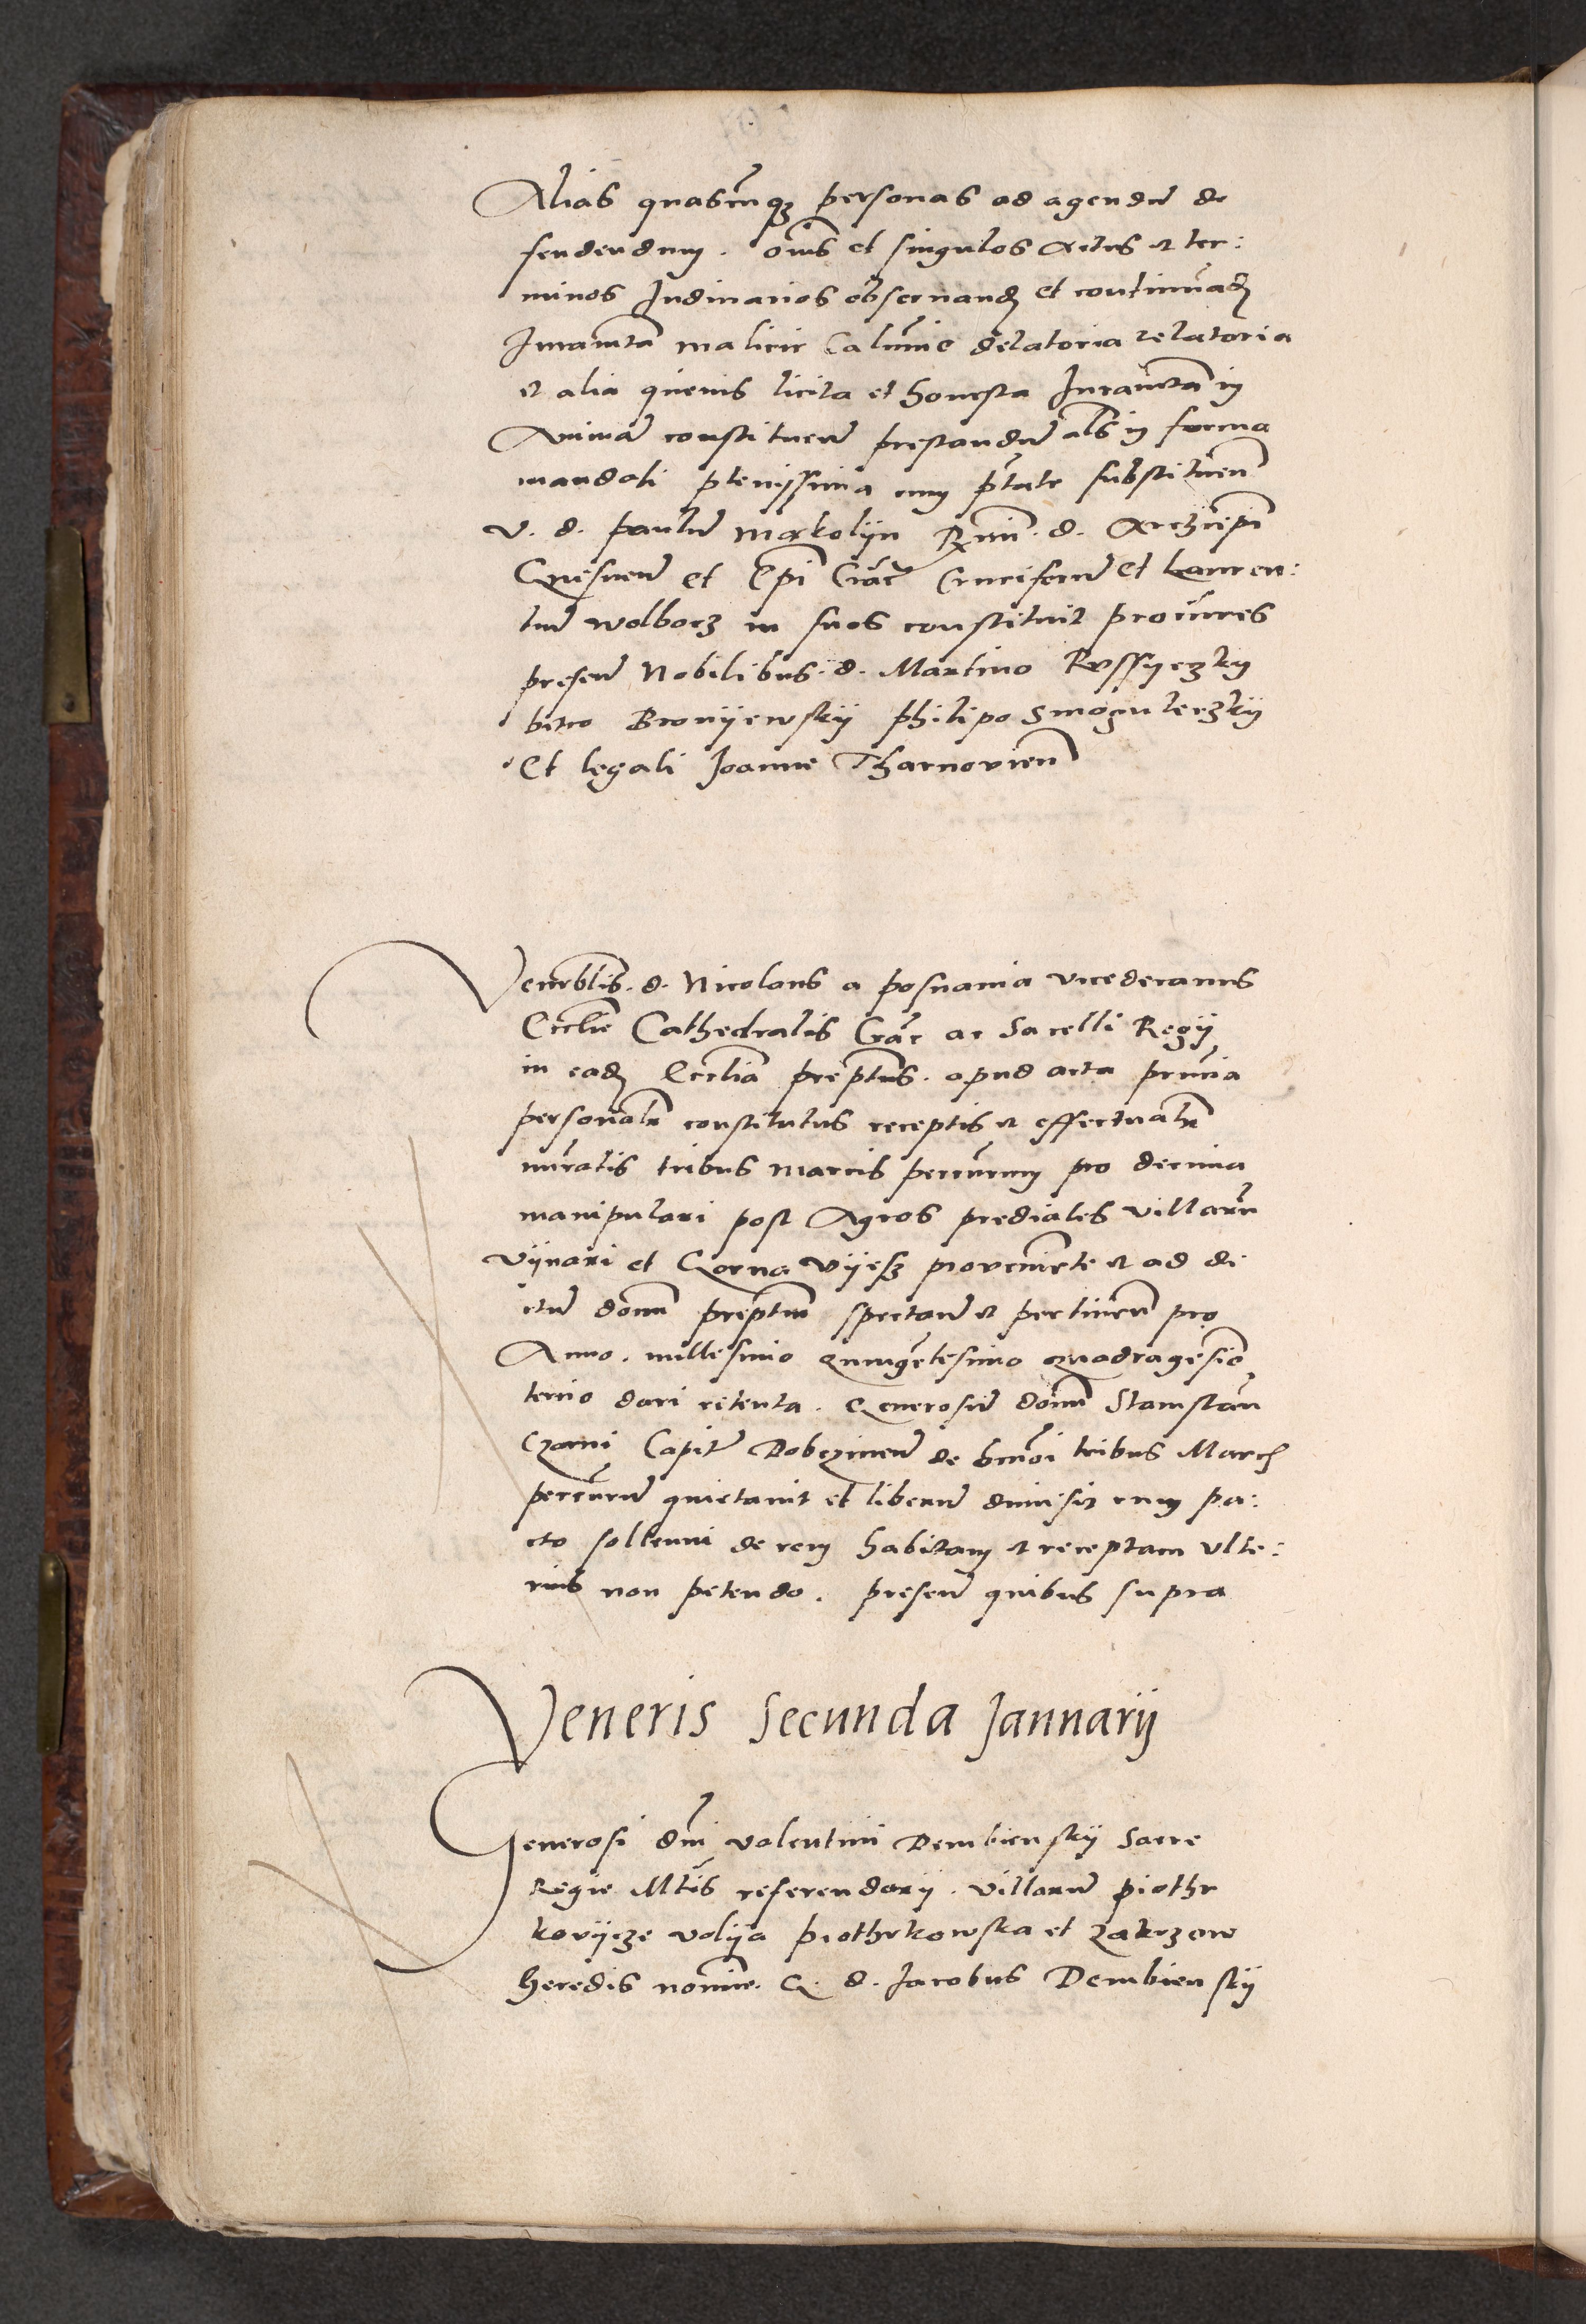 Alias quascūqȝ personas ad agendū de
fendendum . om̄s et singulos Actus et ter:
minos Iudiciarios observandȝ et continuādȝ
Iuramētā malicie Calūnie delatoria relatoria
et alia quevis licita et honesta Iuramētā in
Animā constituen̄ prestandū als in forma
mandati plenissima cum ptāte substituen̄
V. d. paulū Markolijn Rmi . d. Archiepī
Gnesnen̄ et Epī Crāc Cruciferū et Lauren:
tiū Wolborz in suos constituit procūres
presen̄ Nobilibus . d. Martino Russyeczky
petro Bronijewskij philipo Smoguleczkij
Et legali Joanne Tharnovien̄
Venerblis . d. Nicolaus a posnania vicedecanus
Ecclie Cathedralis Crāc ac Sacelli Regij
in eadȝ Ecclia prepтus . apud acta prn̄cia
personalr constitutus receptis et effectualr
nūratis tribus marcis peccuniarum pro decima
manipulari post Agros prediales villarū
Vijnari et Czorna Vijesz proveniēte et ad di
ctū donū prepтum spectan̄ et pertinen̄ pro
Anno . millesimo Quingētesimo Quadragesimo
tercio dari retenta . Generosū donū Stanislau
Czarni Capit Dobczinen̄ de hmōi tribus Marc
peccun̄ quietavit et liberū dimisit cum pa:
cto sollenni de rem habitam et receptam ulte:
rius non petendo . presen̄ quibus supra
Veneris Secunda Januarij
Generosi dni Valentini Dembienskij Sacre
Regie Mtis referendarij . villarū piothr
kovijcze Volija piothrkowska et Zakrzow
heredis nomine . G. d. Jacobus Dembienskij